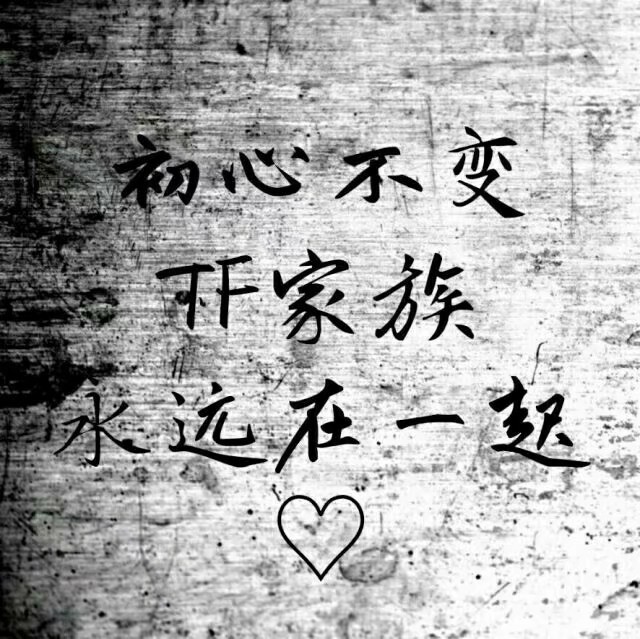 初心不变
TF家族
永远在一起